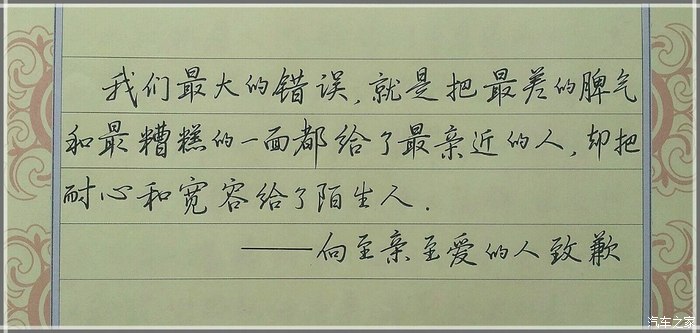 我们最大的错误,就是把最差的脾气
和最糟糕的一面都给了最亲近的人,却把
耐心和宽容给了陌生人.
——向至亲至爱的人致歉
汽车之家